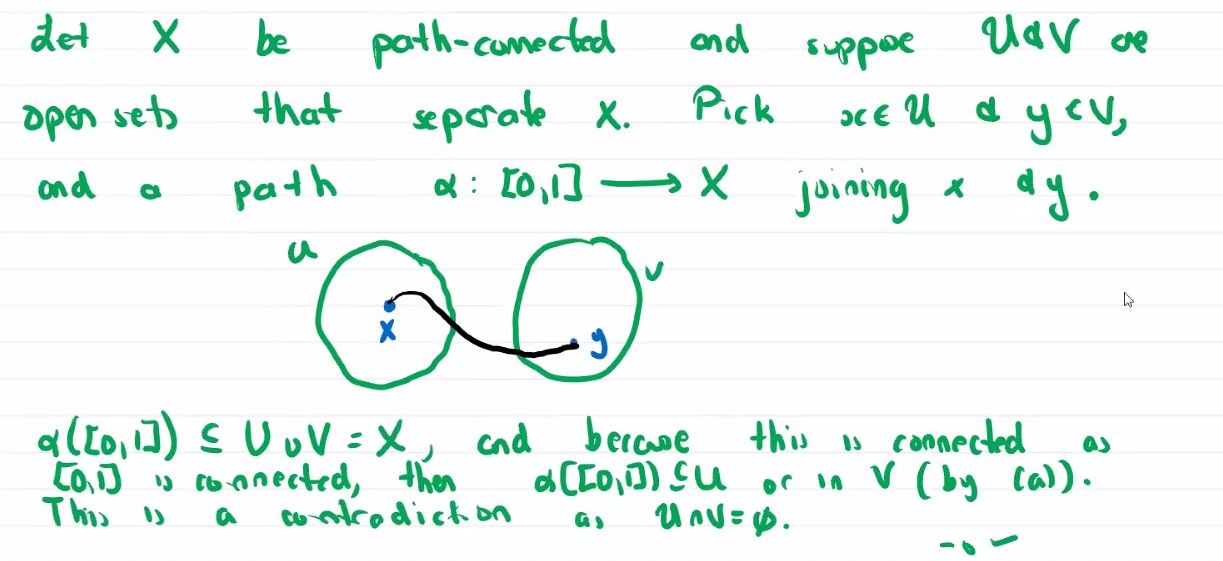 Let X be path-connected and suppose U & V are
open sets that separate X. Pick x ∈ U & y ∈ V,
and a path α : [0,1] ⟶ X joining x & y.
U
V
x
y
α([0,1]) ⊆ U ∪ V = X, and because this is connected as
[0,1] is connected, then α([0,1]) ⊆ U or in V (by (a)).
This is a contradiction as U ∩ V = ∅.